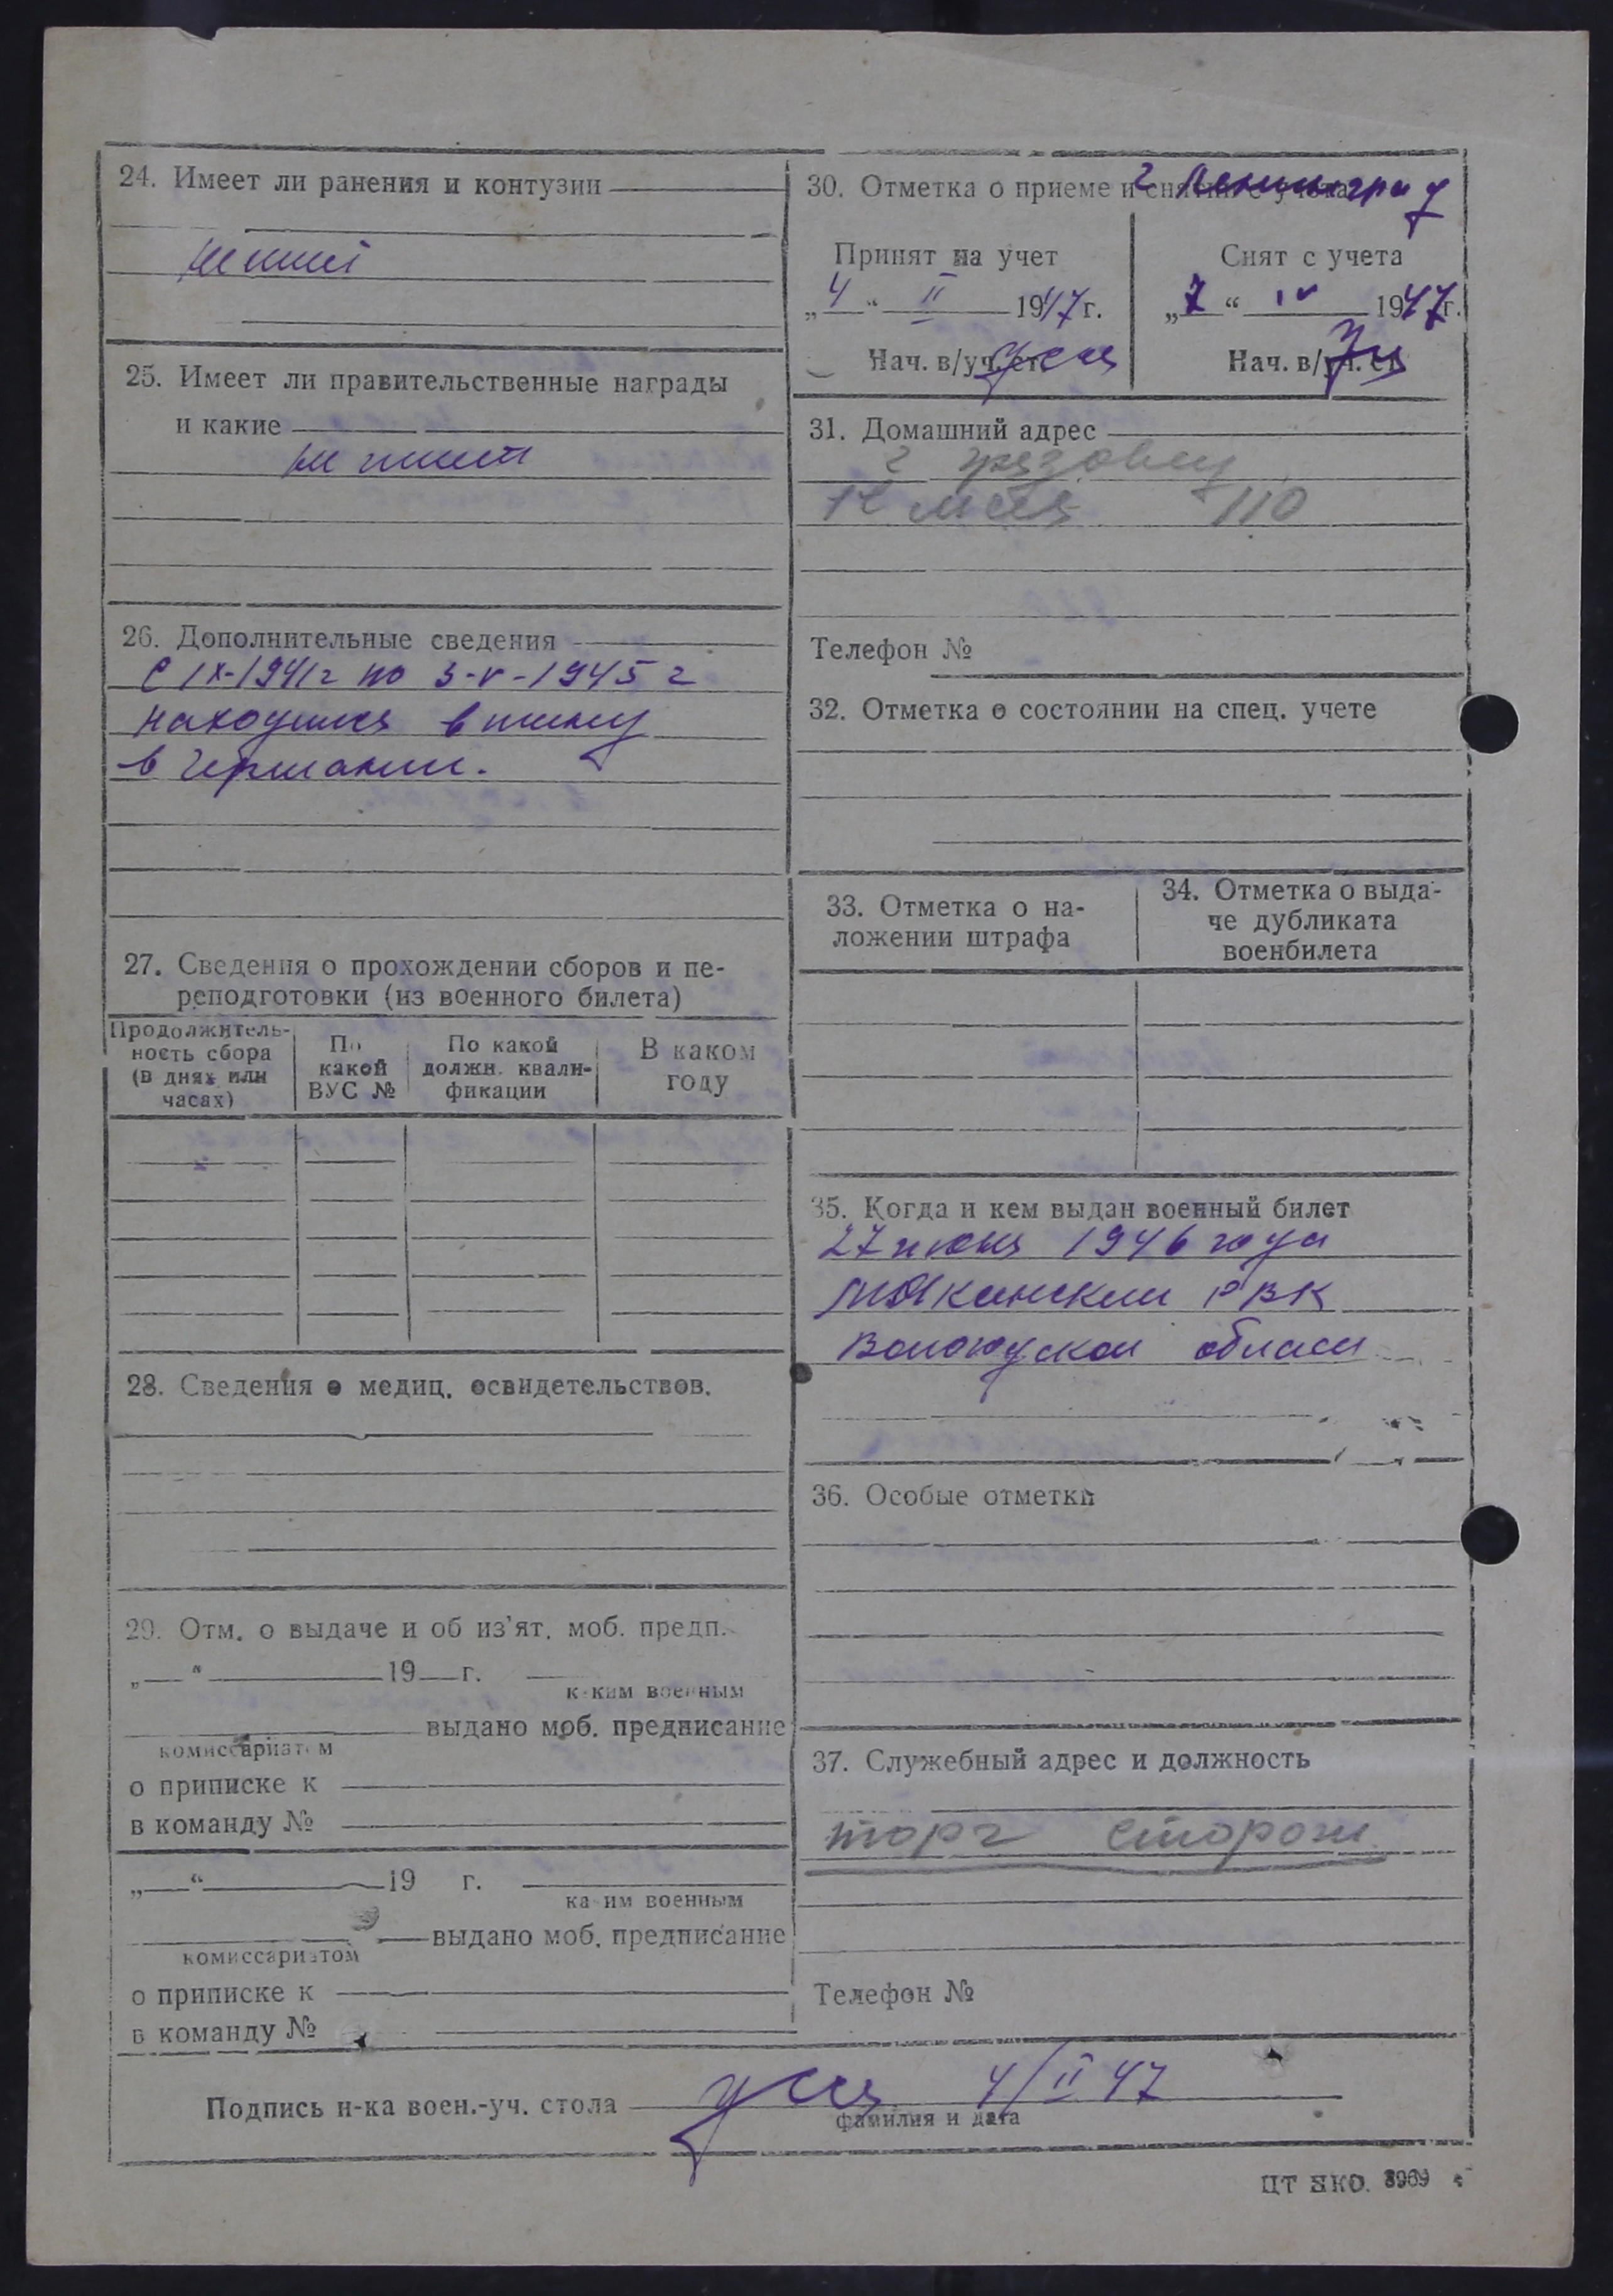 24. Имеет ли ранения и контузии
не имеет
25. Имеет ли правительственные награды
и какие
не имеет
26. Дополнительные сведения
с IX-1941г по 3-V-1945 г
находился в плену
в Германии.
27. Сведения о прохождении сборов и пе-
реподготовки (из военного билета)
Продолжитель-
ность сбора
(в днях или
часах)
По
какой
ВУС №
По какой
должн. квали-
фикации
В каком
году
28. Сведения о медиц. освидетельствов.
29. Отм. о выдаче и об из'ят. моб. предп.
„ “ 19 г.
каким военным
выдано моб. предписание
комиссариатом
о приписке к
в команду №
„ “ 19 г.
каким военным
выдано моб. предписание
комиссариатом
о приписке к
в команду №
30. Отметка о приеме и снятии с учета
г Ленинград
Принят на учет
„4“ II 1947г.
Нач. в/уч. ст.
Снят с учета
„7“ IV 1947г.
Нач. в/уч. ст.
31. Домашний адрес
г Грязовец
110
Телефон №
32. Отметка о состоянии на спец. учете
33. Отметка о на-
ложении штрафа
34. Отметка о выда-
че дубликата
военбилета
35. Когда и кем выдан военный билет
27 июня 1946 года
РВК
Вологодской области
36. Особые отметки
37. Служебный адрес и должность
торг сторож
Телефон №
Подпись н-ка воен.-уч. стола
4/II 47
фамилия и дата
ЦТ НКО. 3969